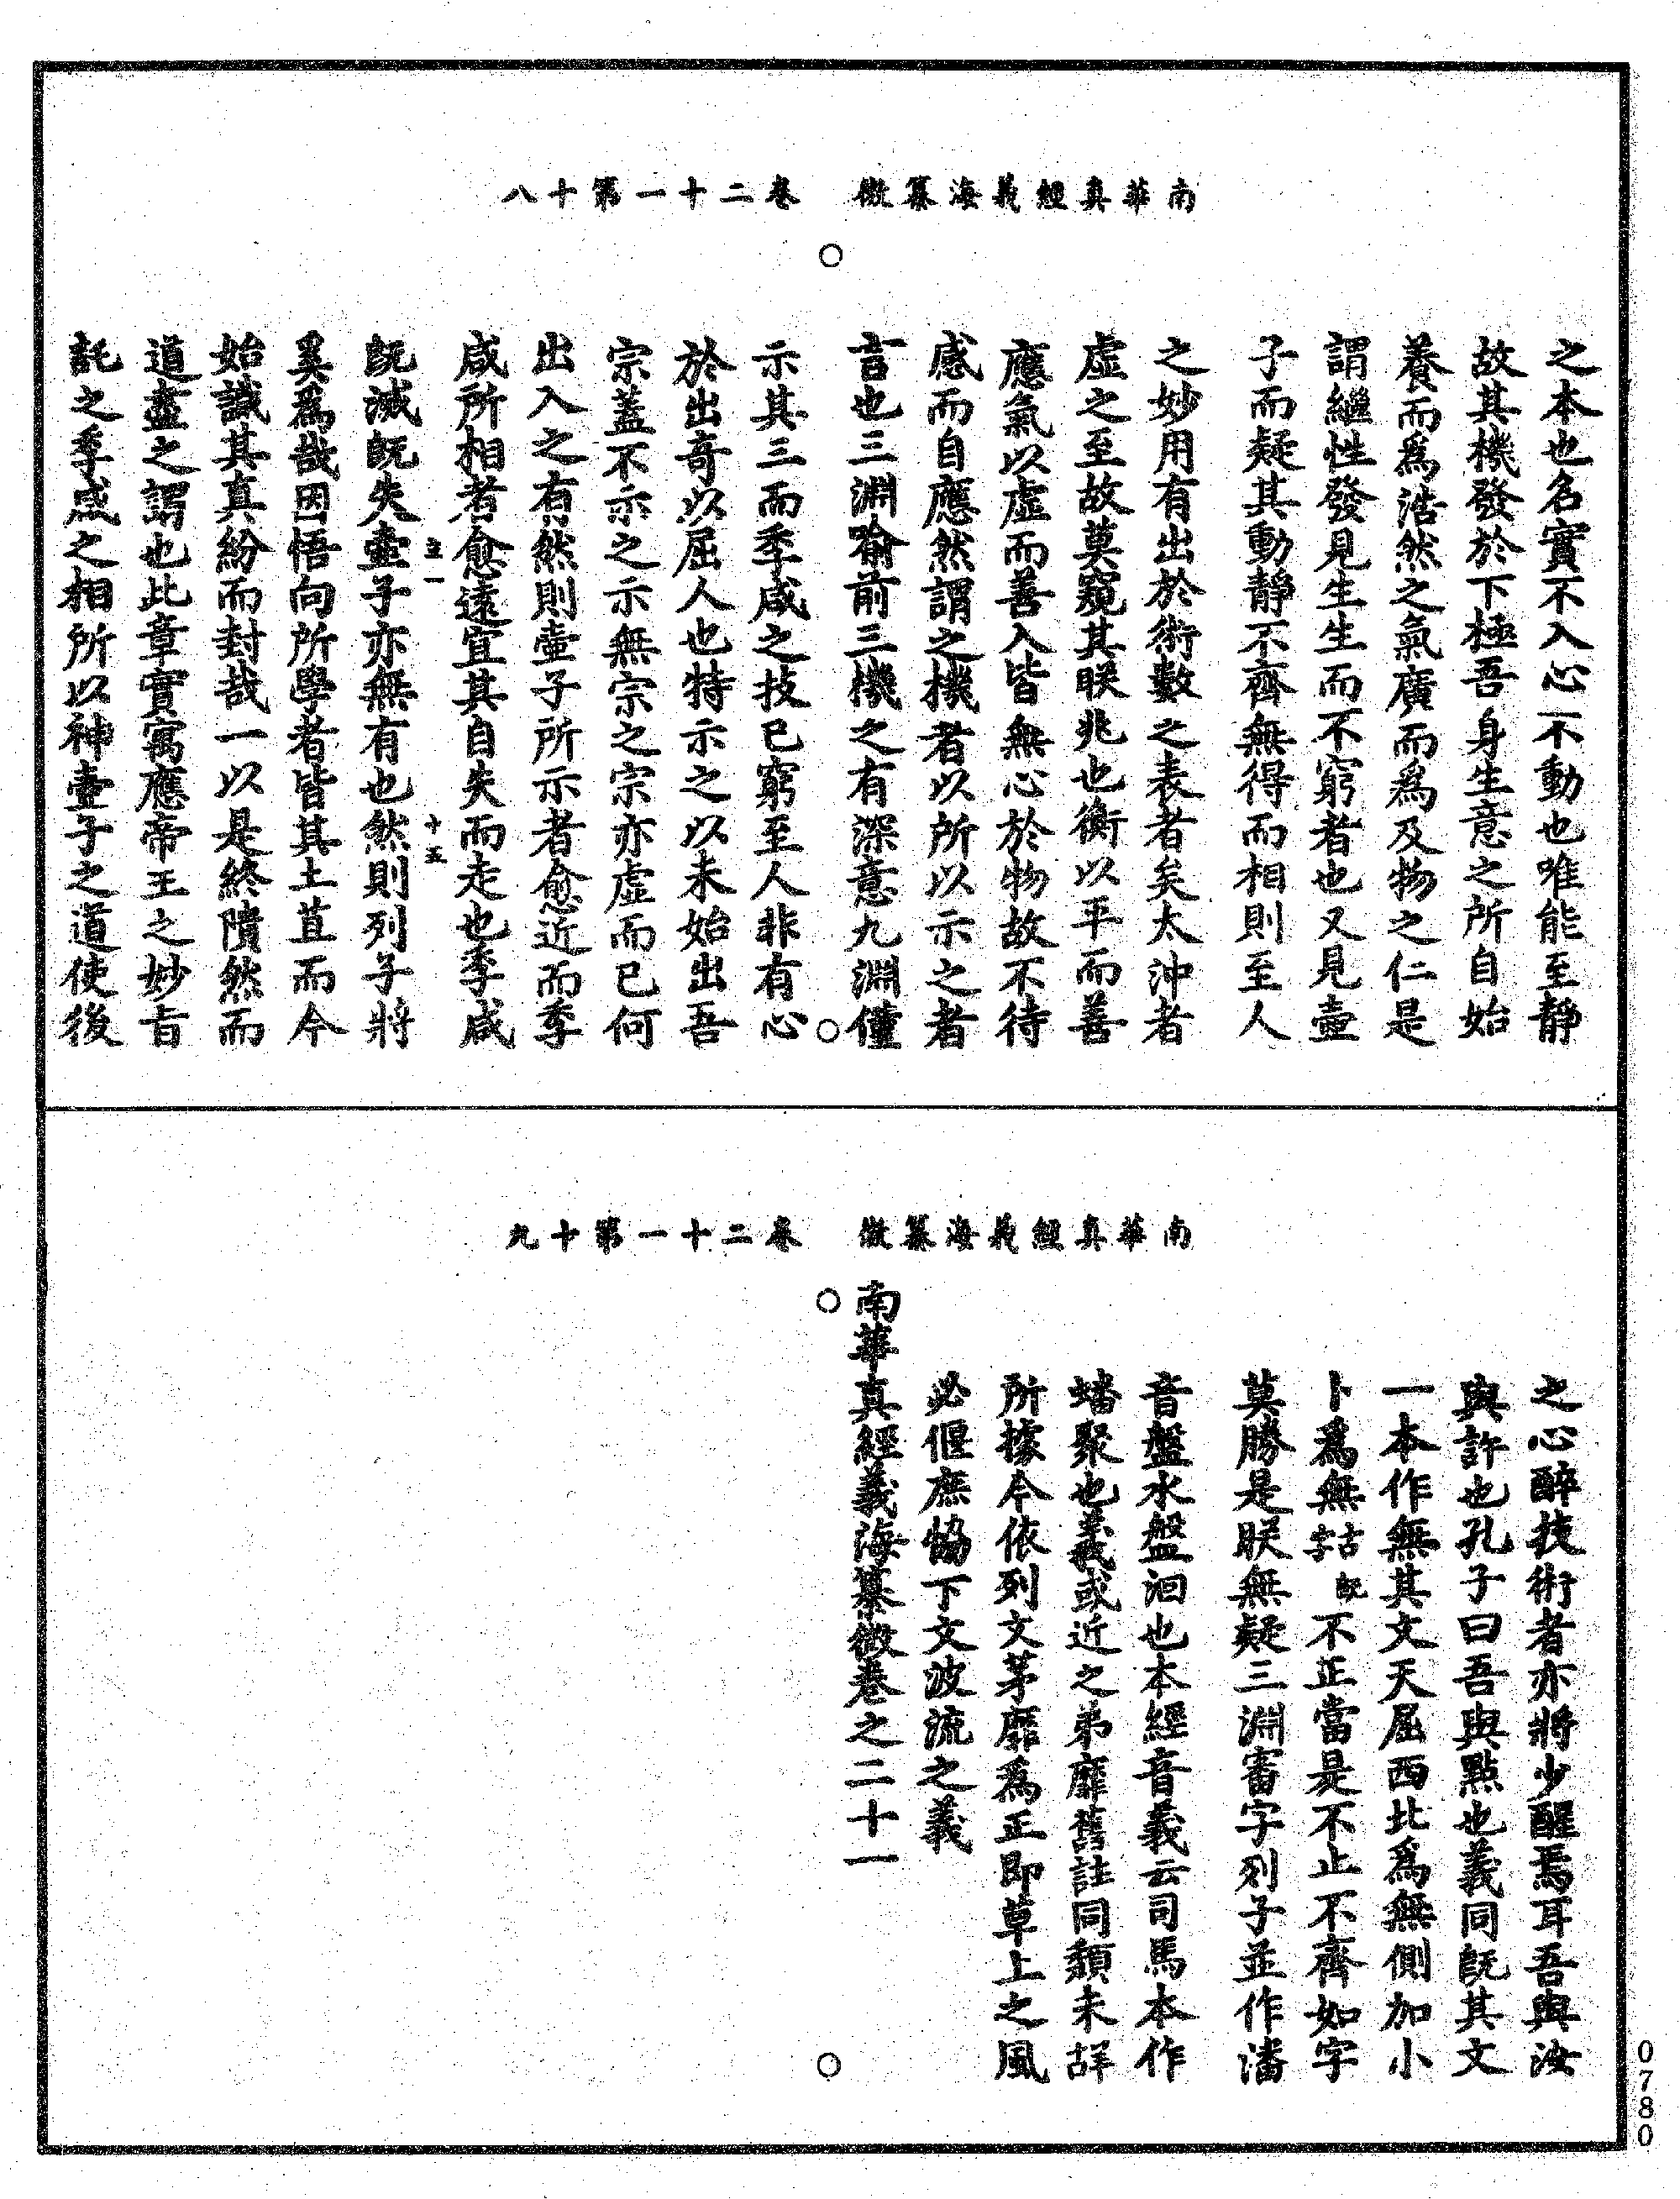 南華真經義海纂微　卷二十一第十八
之本也名實不入心不動也唯能至靜
故其機發於下極吾身生意之所自始
養而爲浩然之氣廣而爲及物之仁是
謂繼性發見生生而不窮者也又見壺
子而疑其動靜不齊無得而相則至人
之妙用有出於術數之表者矣太沖者
虛之至故莫窺其眹兆也衡以平而善
應氣以虛而善入皆無心於物故不待
感而自應然謂之機者以所以示之者
言也三淵喻前三機之有深意九淵僅
示其三而季咸之技已窮至人非有心
於出奇以屈人也特示之以未始出吾
宗蓋不示之示無宗之宗亦虛而已何
出入之有然則壺子所示者愈近而季
咸所相者愈遠宜其自失而走也季咸
既滅既失壺子亦無有也然則列子將
奚爲哉因悟向所學者皆其土苴而今
始識其真紛而封哉一以是終隤然而
道盡之謂也此章實寓應帝王之妙旨
託之季咸之相所以神壺子之道使後
十五
南華真經義海纂微　卷二十一第十九
之心醉技術者亦將少醒焉耳吾與汝
與許也孔子曰吾與點也義同既其文
一本作無其文天屈西北爲無側加小
卜爲無古字既不正當是不止不齊如字
莫勝是眹無疑三淵審字列子並作潘
音盤水盤洄也本經音義云司馬本作
蟠聚也義或近之弟靡舊註同頹未詳
所據今依列文茅靡爲正即草上之風
必偃庶協下文波流之義
南華真經義海纂微卷之二十一
0780